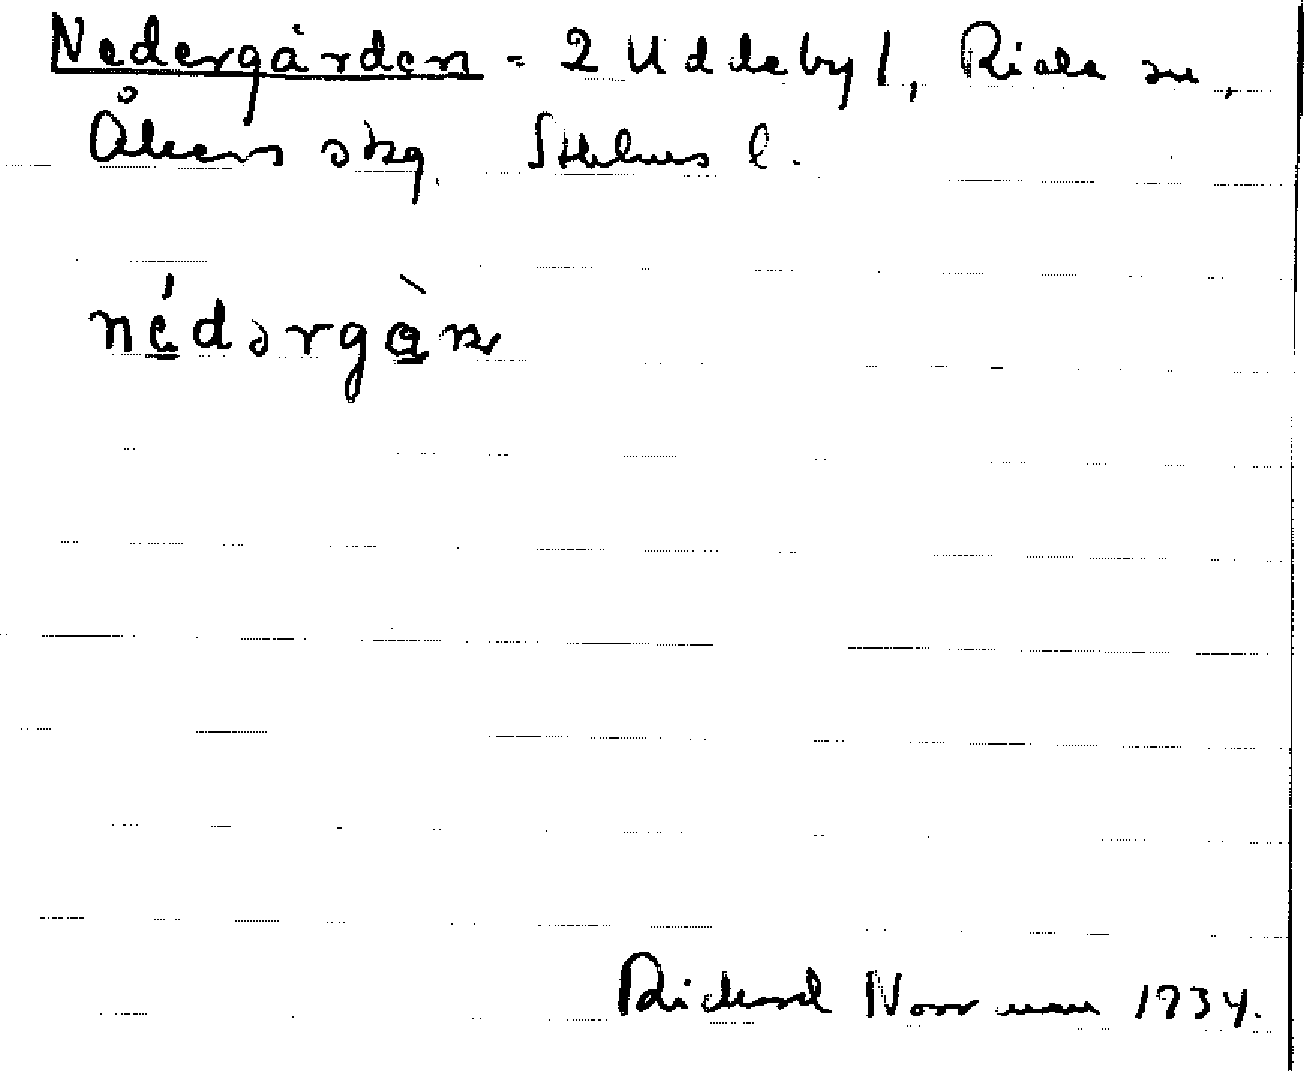 Nedergården = 2 Uddeby 1, Riala sn,
Åkers skg. Sthlms l.
nédərgà̱ṇ
Richard Norrman 1934.